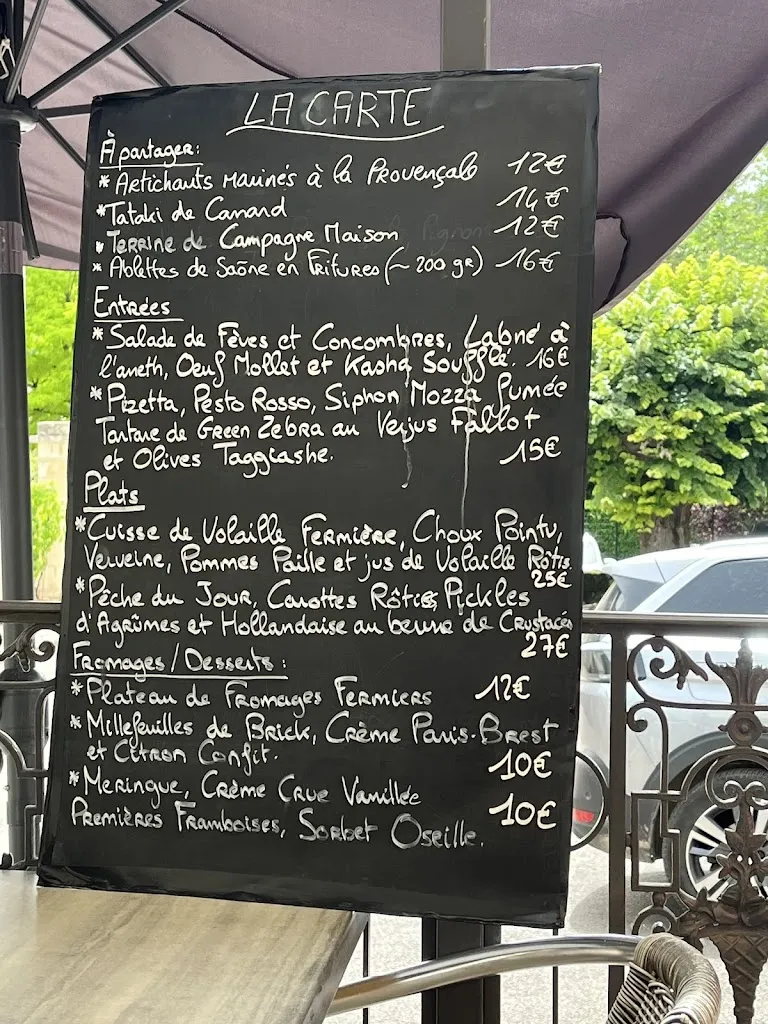 LA CARTE
À partager:
* Artichauts marinés à la Provençale 12€
* Tataki de Canard 14€
* Terrine de Campagne Maison 12€
* Ablettes de Saône en Fritures (~ 200 gr) 16€
Entrées
* Salade de Fèves et Concombres, Labné à
l'aneth, Oeuf Mollet et Kasha Soufflé. 16€
* Pizetta, Pesto Rosso, Siphon Mozza fumée
Tartare de Green Zebra au Verjus Fallot
et Olives Taggiashe. 15€
Plats
* Cuisse de Volaille Fermière, Choux Pointu,
Verveine, Pommes Paille et jus de Volaille Rôtis
25€
* Pêche du Jour, Carottes Rôties Pickles
d'Agrûmes et Hollandaise au beurre de Crustacés
27€
Fromages/Desserts:
* Plateau de Fromages Fermiers 12€
* Millefeuilles de Brick, Crème Paris-Brest
et Citron Confit. 10€
* Meringue, Crème Crue Vanillée
Premières Framboises, Sorbet Oseille. 10€